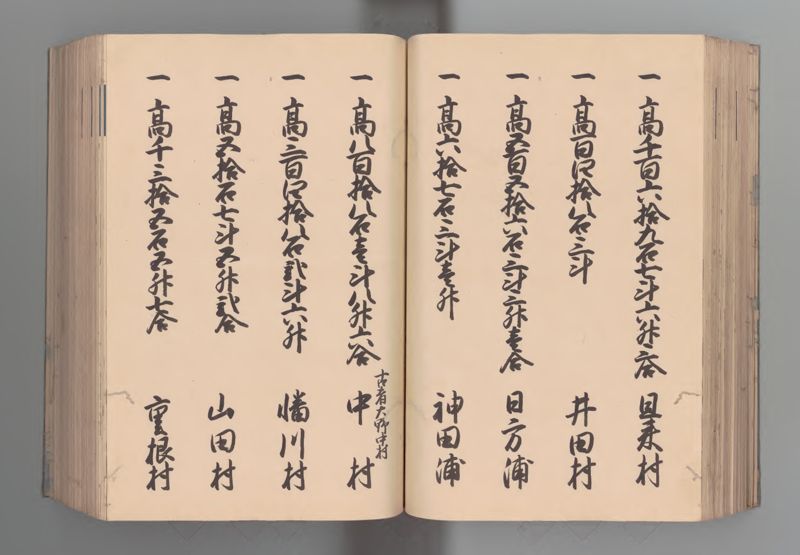 一 高千百六拾九石七斗六升三合 且来村
一 高百四拾八石三斗 井田村
一 高五百五拾六石三斗三升壱合 日方浦
一 高六拾七石三斗壱升 神田浦
古者大野中村
一 高八百拾八石壱斗八升六合 中村
一 高三百四拾八石弐斗六升 幡川村
一 高五拾石七斗五升弐合 山田村
一 高千三拾五石五升七合 重根村